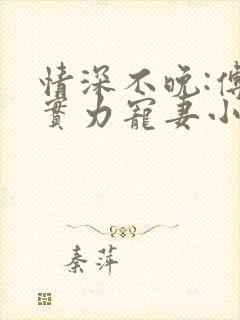 情深不晚:傅
實力寵妻小
秦萍